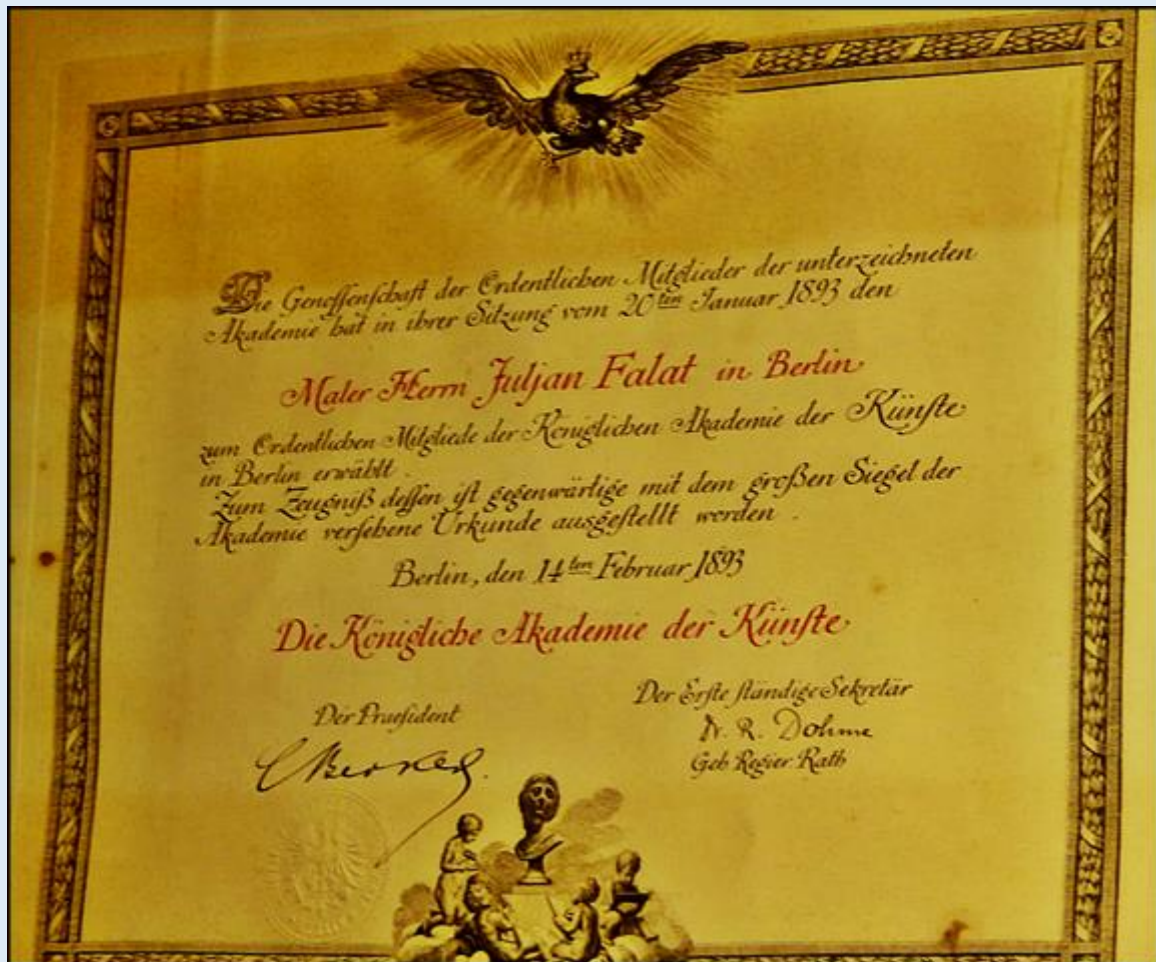 Die Genossenschaft der Ordentlichen Mitglieder der unterzeichneten
Akademie hat in ihrer Sitzung vom 20ten Januar 1893 den
Maler Herrn Juljan Falat in Berlin
zum Ordentlichen Mitgliede der Königlichen Akademie der Künste
in Berlin erwählt.
Zum Zeugniß dessen ist gegenwärtige mit dem großen Siegel der
Akademie versehene Urkunde ausgestellt worden.
Berlin, den 14ten Februar 1893
Die Königliche Akademie der Künste
Der Praesident
C Becker.
Der Erste ständige Sekretär
Dr. R. Dohme
Geh Regier Rath